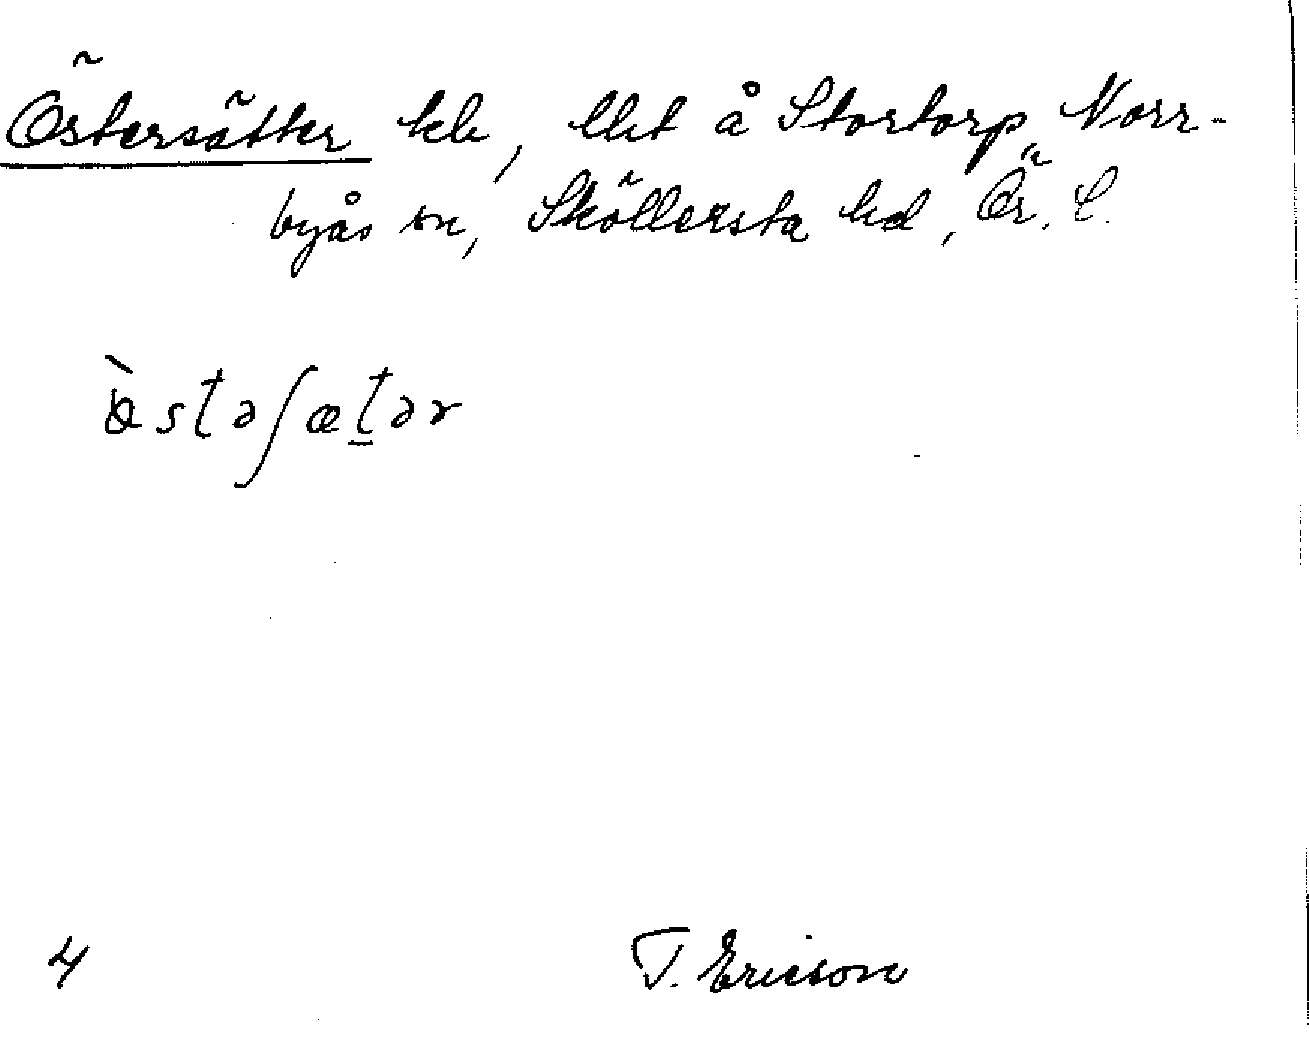 Östersätter hl, Ut å Stortorp, Norr-
byås sn, Sköllersta hd, Ör. l.
ö̀stəʃætər
4
T. Ericson